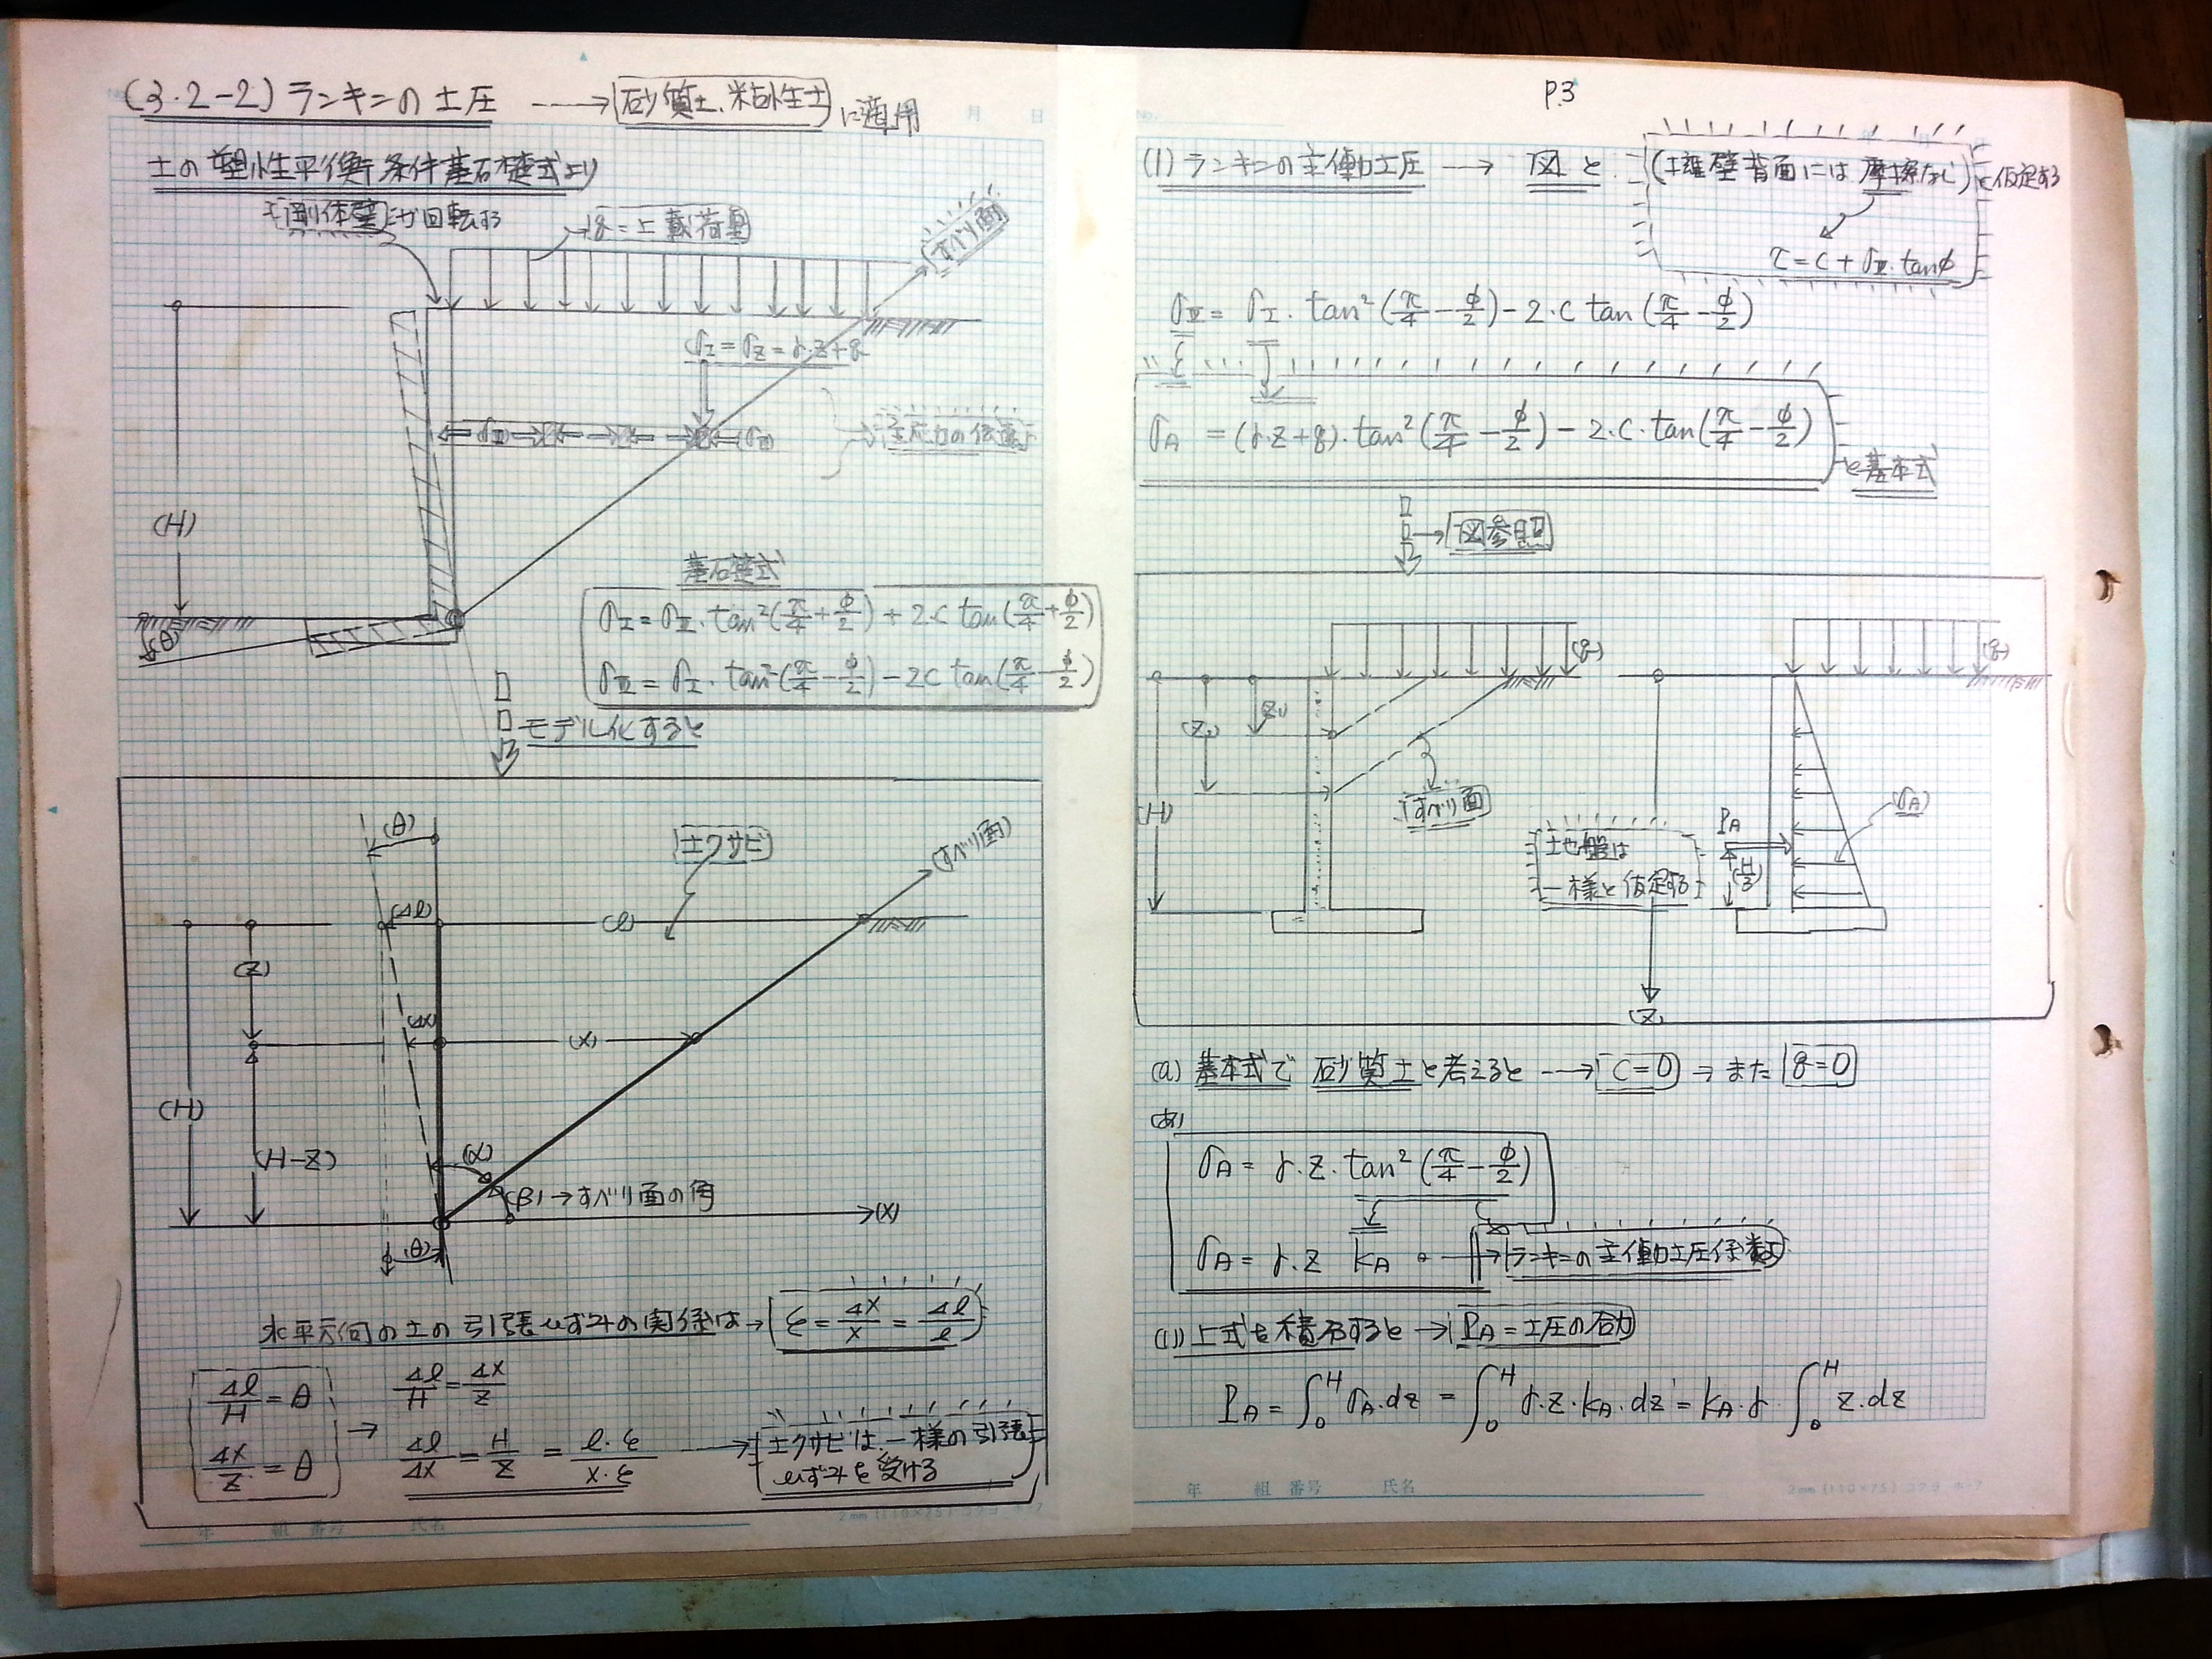 (3.2-2) ランキンの土圧 → 砂質土、粘性土 に適用
土の塑性平衡条件基礎式より
剛体壁が回転する
q=上載荷重
(すべり面)
σⅠ=σz=γ.z+q
主応力の伝達
(H)
(θ)
基礎式
σⅠ=σⅢ.tan²(π/4+φ/2)+2.c tan(π/4+φ/2)
σⅢ=σⅠ.tan²(π/4-φ/2)-2c tan(π/4-φ/2)
モデル化すると
(θ)
土クサビ
(すべり面)
(Δl)
(l)
(Z)
(Δx)
(x)
(H)
(H-Z)
(α)
(β) → すべり面の角
(x)
(θ)
水平方向の土の引張ひずみの関係は → ε=Δx/x=Δl/l
Δl/H=θ → Δl/H=Δx/z
Δx/z=θ Δl/Δx=H/z=l.ε/x.ε → 土クサビは、一様の引張
ひずみを受ける
P.3
(1) ランキンの主働土圧 → 図と (擁壁背面には摩擦なし)と仮定する
τ=c+σⅢ.tanφ
σⅢ=σⅠ.tan²(π/4-φ/2)-2.c tan(π/4-φ/2)
σA=(γ.z+q).tan²(π/4-φ/2)-2.c.tan(π/4-φ/2)
基本式
→図参照
(q)
(q)
(Z₁)
(H)
(すべり面)
土地盤は
一様と仮定する
PA
(H/3)
(σA)
(Z)
(a) 基本式で 砂質土と考えると → c=0 → また q=0
(あ)
σA=γ.z.tan²(π/4-φ/2)
σA=γ.z kA → ランキンの主働土圧係数
(い) 上式を積分すると → PA=土圧の合力
PA=∫₀ᴴσA.dz=∫₀ᴴγ.z.kA.dz=kA.γ.∫₀ᴴz.dz
年 組 番号 氏名
年 組 番号 氏名